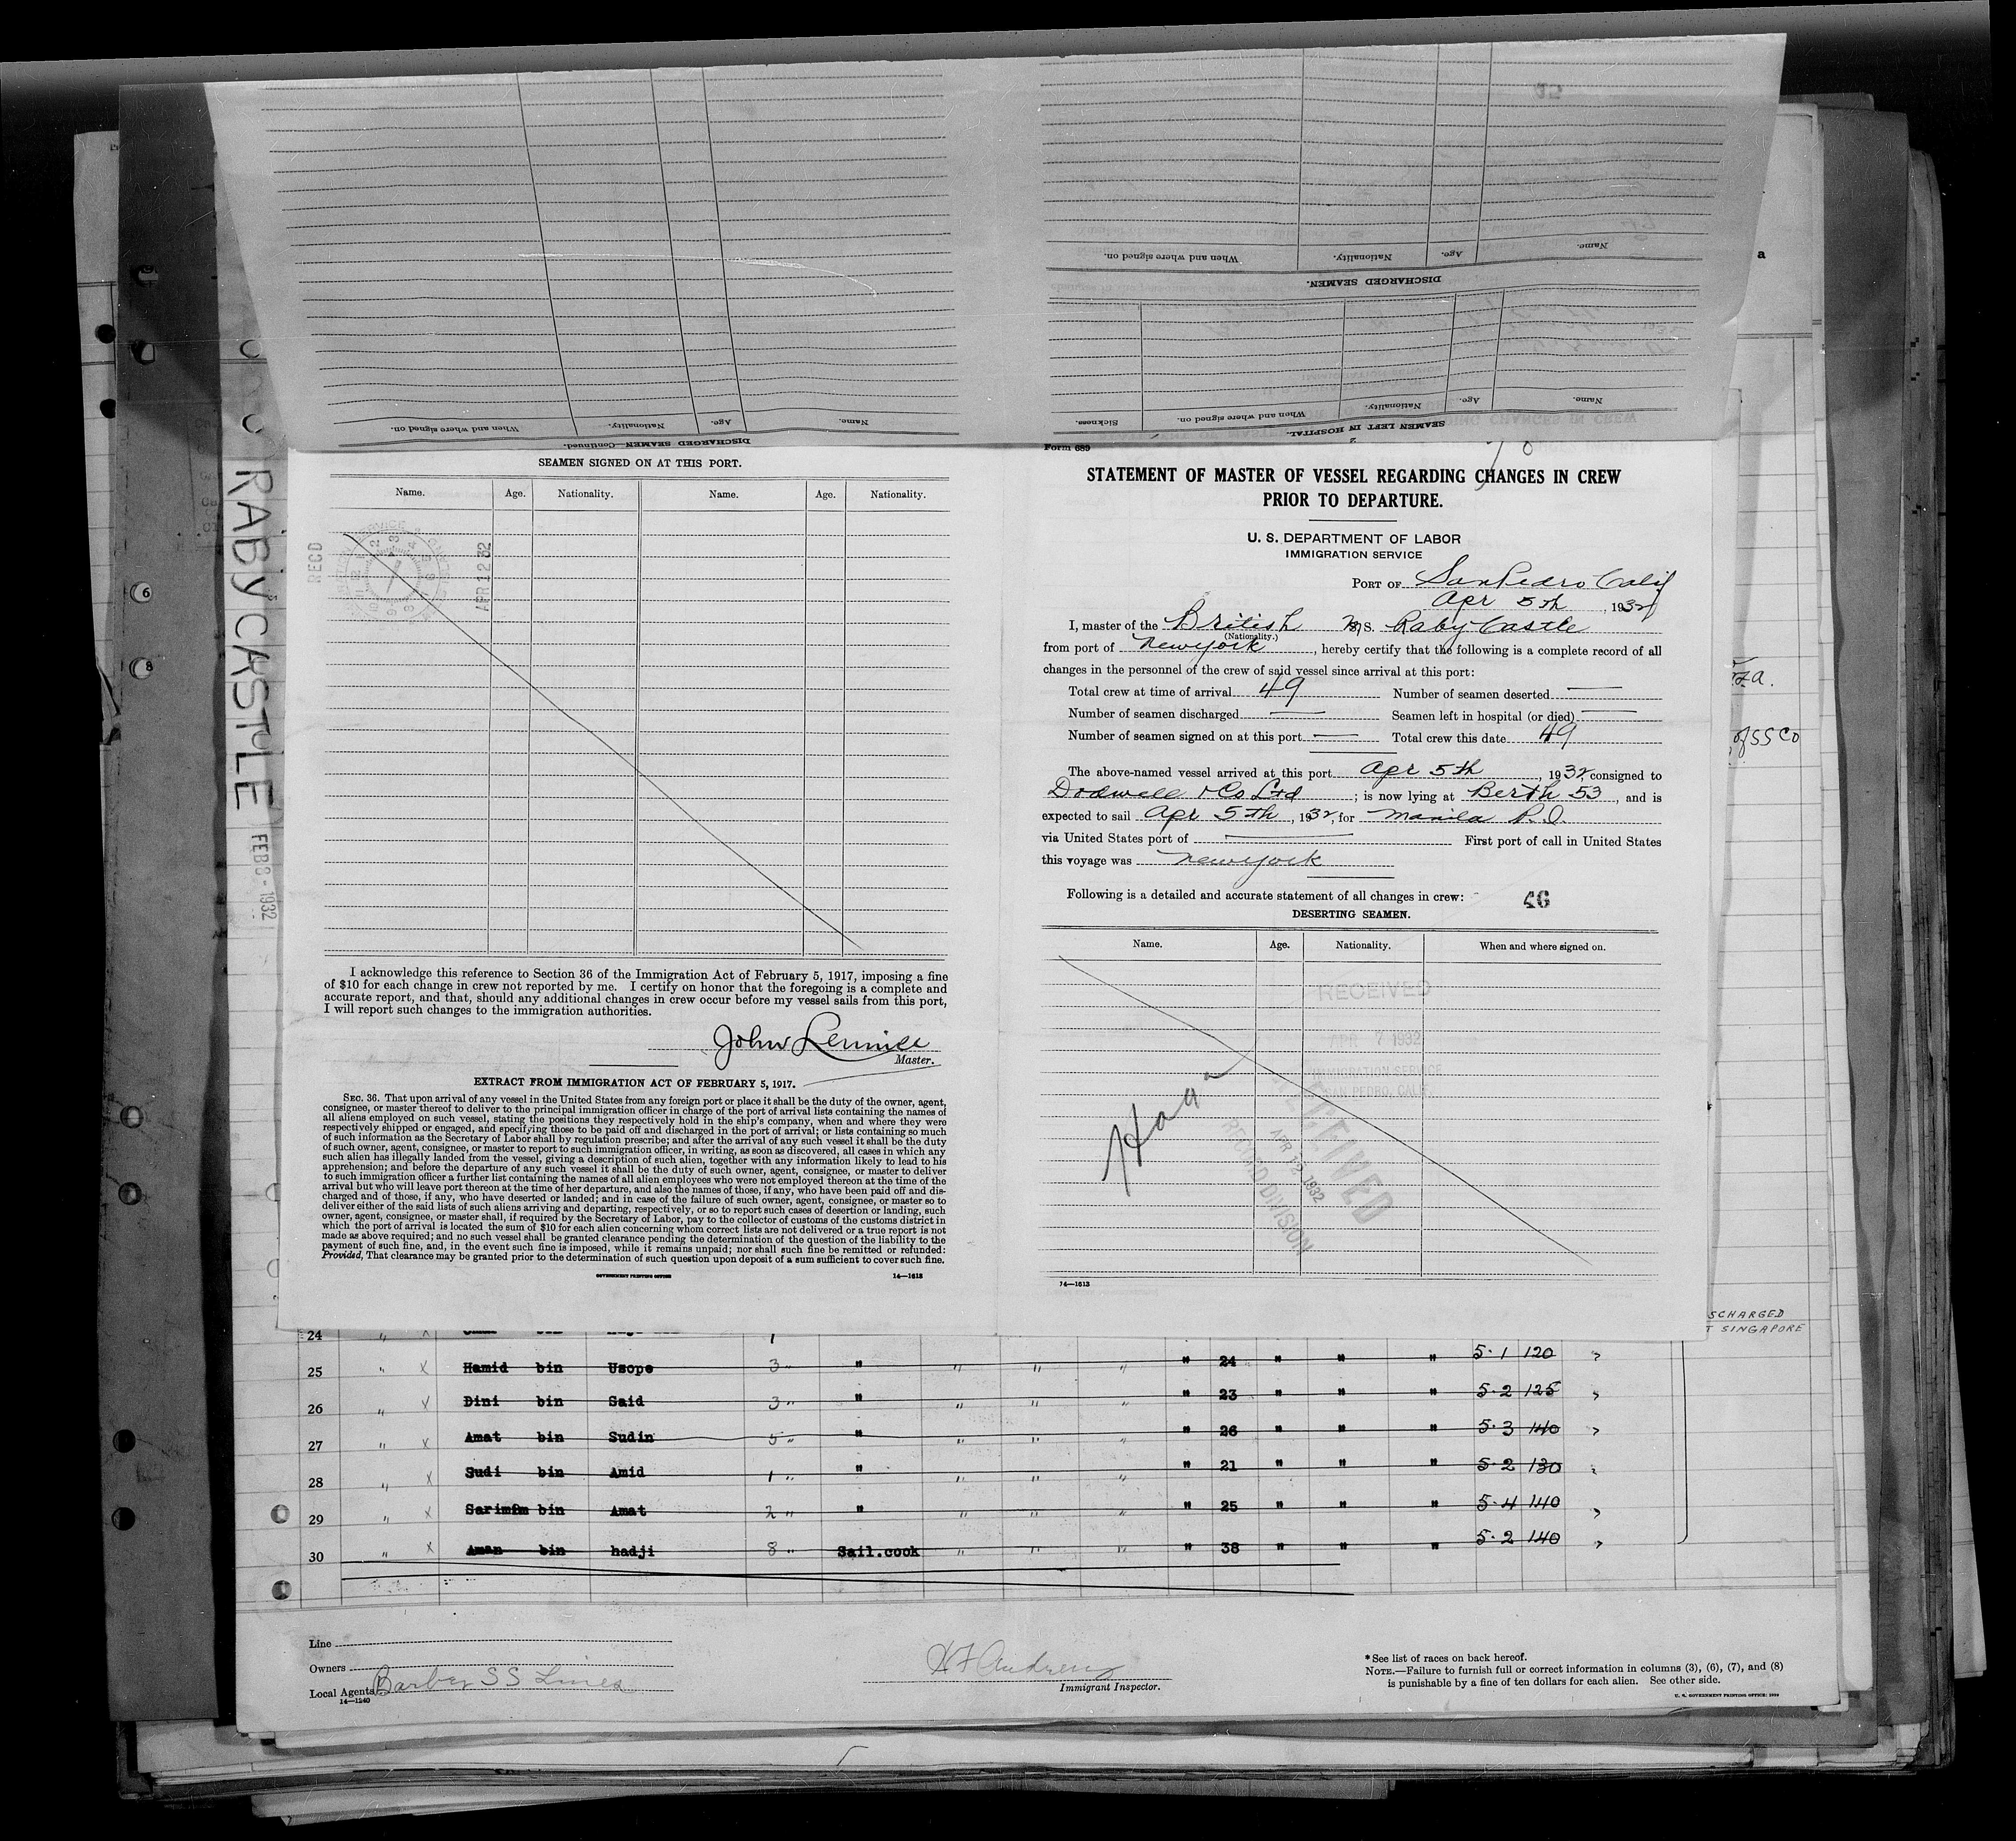 RABY CASTLE
FEB 8 - 1932
DISCHARGED SEAMEN—Continued.
Name. Age. Nationality. When and where signed on.
DISCHARGED SEAMEN.
Name. Age. Nationality. When and where signed on.
2
SEAMEN LEFT IN HOSPITAL.
Name. Age. Nationality. When and where signed on. Sickness.
SEAMEN SIGNED ON AT THIS PORT.
Name. Age. Nationality. Name. Age. Nationality.
RECD
APR 12 32
I acknowledge this reference to Section 36 of the Immigration Act of February 5, 1917, imposing a fine
of $10 for each change in crew not reported by me. I certify on honor that the foregoing is a complete and
accurate report, and that, should any additional changes in crew occur before my vessel sails from this port,
I will report such changes to the immigration authorities.
John
Master.
EXTRACT FROM IMMIGRATION ACT OF FEBRUARY 5, 1917.
SEC. 36. That upon arrival of any vessel in the United States from any foreign port or place it shall be the duty of the owner, agent,
consignee, or master thereof to deliver to the principal immigration officer in charge of the port of arrival lists containing the names of
all aliens employed on such vessel, stating the positions they respectively hold in the ship's company, when and where they were
respectively shipped or engaged, and specifying those to be paid off and discharged in the port of arrival; or lists containing so much
of such information as the Secretary of Labor shall by regulation prescribe; and after the arrival of any such vessel it shall be the duty
of such owner, agent, consignee, or master to report to such immigration officer, in writing, as soon as discovered, all cases in which any
such alien has illegally landed from the vessel, giving a description of such alien, together with any information likely to lead to his
apprehension; and before the departure of any such vessel it shall be the duty of such owner, agent, consignee, or master to deliver
to such immigration officer a further list containing the names of all alien employees who were not employed thereon at the time of the
arrival but who will leave port thereon at the time of her departure, and also the names of those, if any, who have been paid off and dis-
charged and of those, if any, who have deserted or landed; and in case of the failure of such owner, agent, consignee, or master so to
deliver either of the said lists of such aliens arriving and departing, respectively, or so to report such cases of desertion or landing, such
owner, agent, consignee, or master shall, if required by the Secretary of Labor, pay to the collector of customs of the customs district in
which the port of arrival is located the sum of $10 for each alien concerning whom correct lists are not delivered or a true report is not
made as above required; and no such vessel shall be granted clearance pending the determination of the question of the liability to the
payment of such fine, and, in the event such fine is imposed, while it remains unpaid; nor shall such fine be remitted or refunded:
Provided, That clearance may be granted prior to the determination of such question upon deposit of a sum sufficient to cover such fine.
GOVERNMENT PRINTING OFFICE 14—1613
Form 689
STATEMENT OF MASTER OF VESSEL REGARDING CHANGES IN CREW
PRIOR TO DEPARTURE.
U. S. DEPARTMENT OF LABOR
IMMIGRATION SERVICE
PORT OF San Pedro Calif
Apr 5th, 1932
I, master of the British M/S. Raby Castle
(Nationality.)
from port of New york, hereby certify that the following is a complete record of all
changes in the personnel of the crew of said vessel since arrival at this port:
Total crew at time of arrival 49 Number of seamen deserted —
Number of seamen discharged — Seamen left in hospital (or died) —
Number of seamen signed on at this port — Total crew this date 49
The above-named vessel arrived at this port Apr 5th, 1932, consigned to
Dodwell & Co Ltd; is now lying at Berth 53, and is
expected to sail Apr 5th, 1932, for Manila P.I.
via United States port of — First port of call in United States
this voyage was New york
Following is a detailed and accurate statement of all changes in crew: 46
DESERTING SEAMEN.
Name. Age. Nationality. When and where signed on.
RECEIVED
APR 7 1932
IMMIGRATION SERVICE
SAN PEDRO, CALIF.
RECEIVED
APR 12 1932
RECORD DIVISION
14—1613
of SS Co
SCHARGED
T SINGAPORE
24
25 " X Hamid bin Usope 3 " " " " " " 24 " " " 5·1 120 "
26 " X Dini bin Said 3 " " " " " " 23 " " " 5·2 125 "
27 " X Amat bin Sudin 5 " " " " " " 26 " " " 5·3 140 "
28 " X Sudi bin Amid 1 " " " " " " 21 " " " 5·2 130 "
29 " X bin Amat 2 " " " " " " 25 " " " 5·4 140 "
30 " X Aman bin hadji 8 " Sail.cook " " " " 38 " " " 5·2 140 "
Line
Owners
Local Agents Barber SS Lines
14—1240
Immigrant Inspector.
* See list of races on back hereof.
NOTE.—Failure to furnish full or correct information in columns (3), (6), (7), and (8)
is punishable by a fine of ten dollars for each alien. See other side.